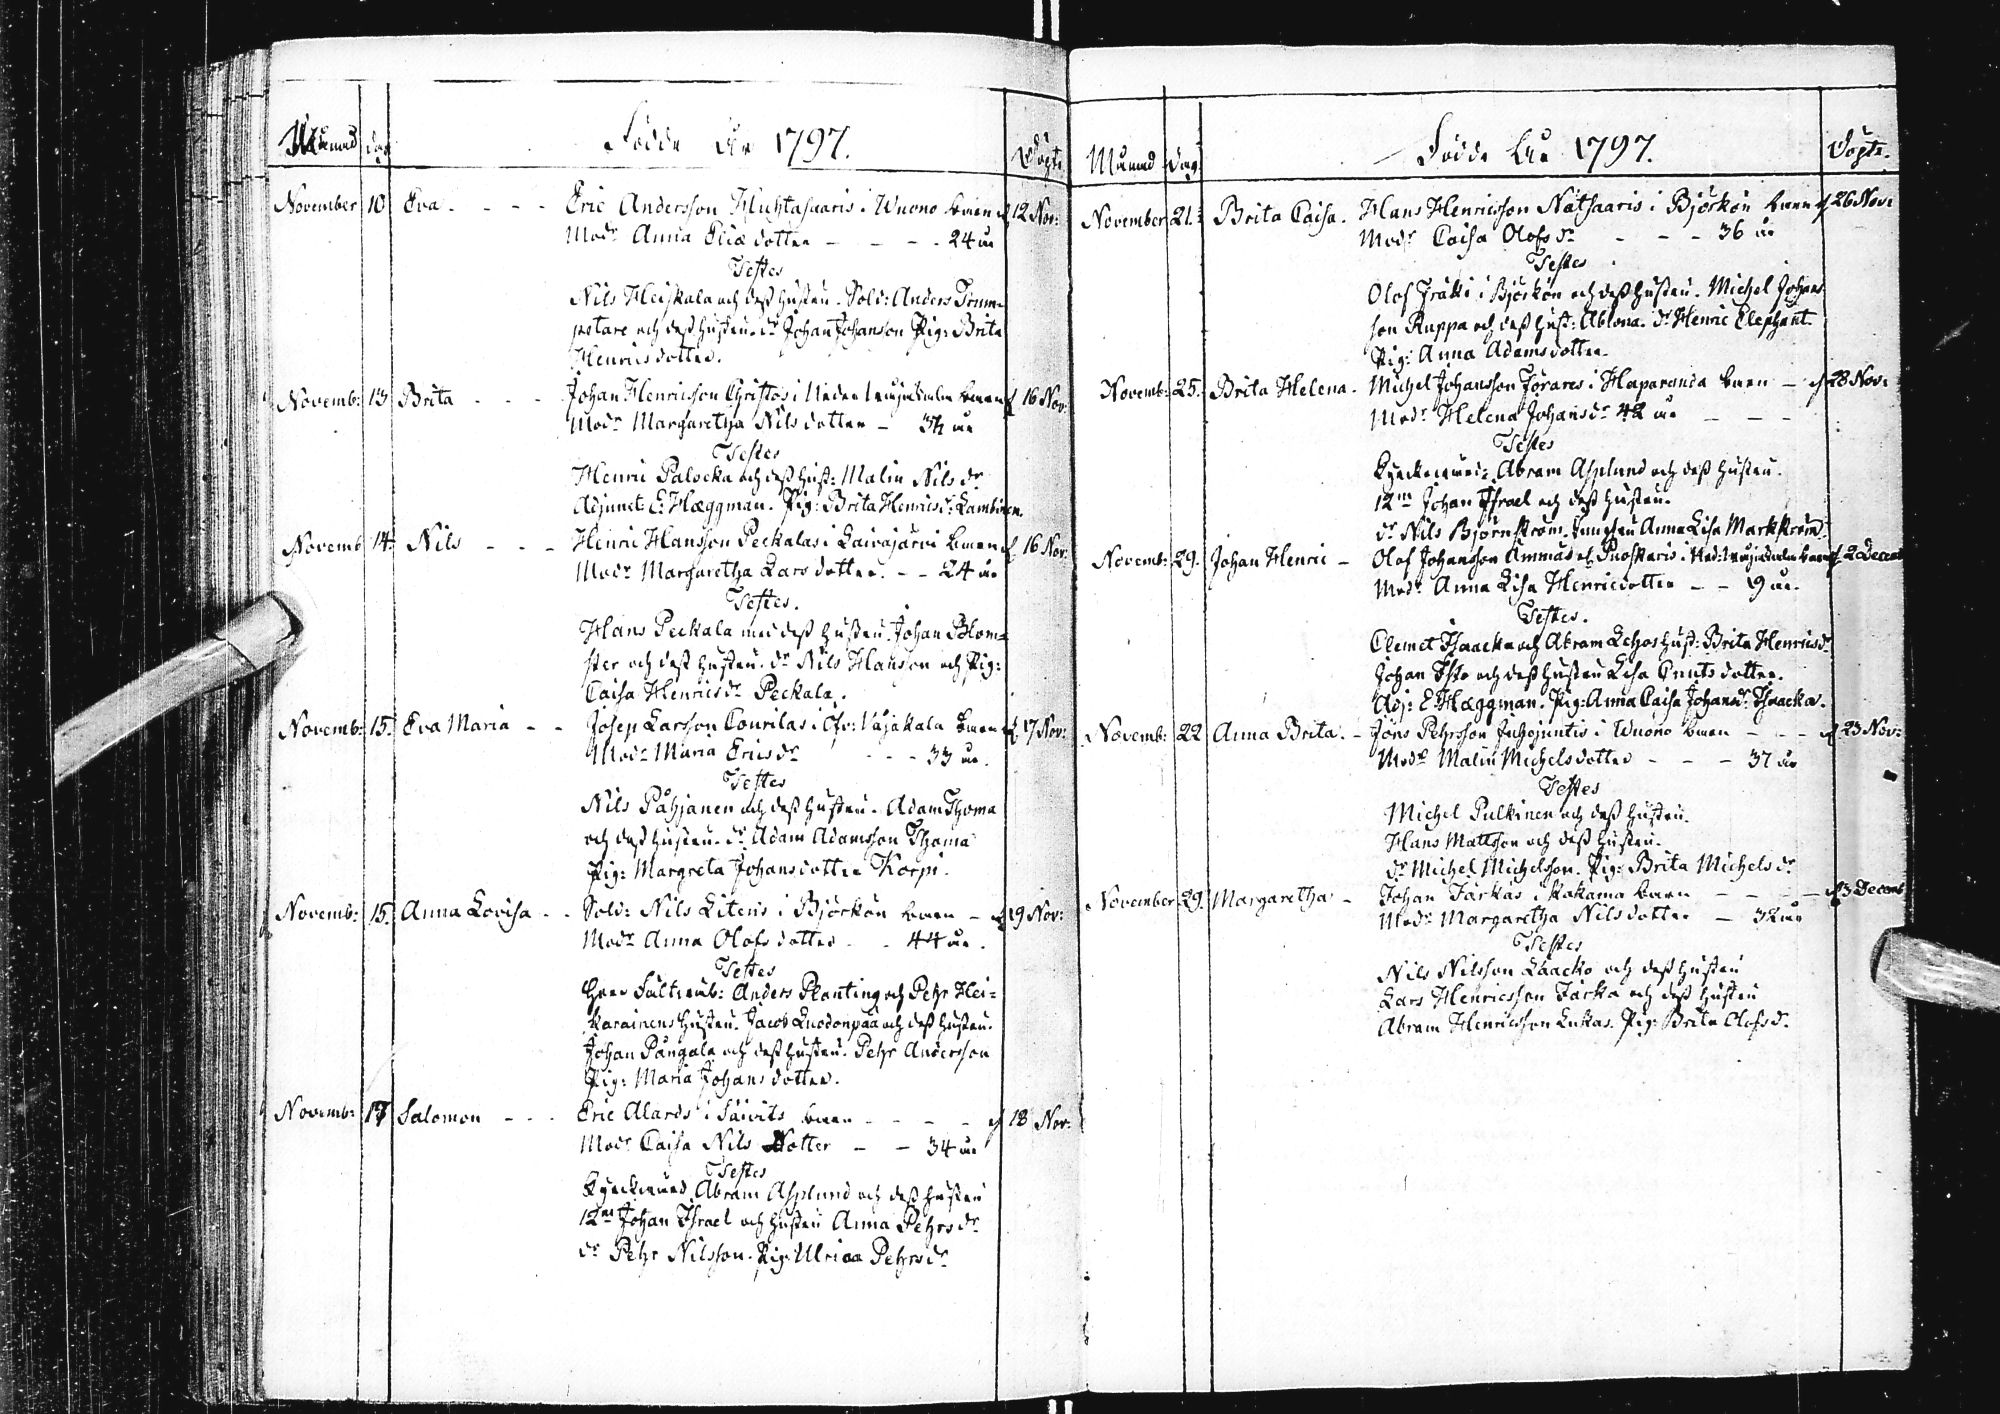 Månad dag Födde År 1797. Döpte
November 10 Eva - - - - Eric Andersson Kuhtasaaris i Wuono barn 12 Nov:
Modr Anna Erics dotter - - - - 24 år
Testes
Nils Heiskala och dess hustru. Sold: Anders Trum=
petare och dess hustru. dr Johan Johanson Pig: Brita
Henrics dotter.
Novemb: 13 Brita - - - Johan Henricsson Christos i Neder barn 16 Nov:
Modr Margaretha Nils dotter - 34 år
Testes
Henric Palocka och dess hust: Malin Nils dr
Adjunct E: Hæggman. Pig: Brita Henrics dr Lambinen.
Novemb 14. Nils - - - Henric Hansson Peckalas i Kaivajärvi barn 16 Nov:
Modr Margaretha Lars dotter. - - 24 år
Testes.
Hans Peckala med dess hustru. Johan Blom=
ster och dess hustru. dr Nils Hanson och Pig:
Caisa Henrics dr Peckala.
Novemb: 15. Eva Maria - - Josep Larsson Courilas i Öfv: Vojakala barn 17 Nov:
Modr Maria Erics dr - - - 33 år.
Testes
Nils Påhjanen och dess hustru. Adam Thoma
och dess hustru. dr Adam Adamsson Thoma
Pig: Margreta Johans dotter Korpi.
Novemb: 15. Anna Lovisa - - Sold: Nils Litens i Björkön barn - 19 Nov:
Modr Anna Olofs dotter - - 44 år.
Testes
Herr Anders Planting och Petr Hei=
karainens hustru. Jacob Luodonpää och dess hustru.
Johan Pångala och dess hustru. Pehr Andersson
Pig: Maria Johans dotter.
Novemb: 17 Salomon - - - Eric Alards i Säivits barn - - - - 18 Nov:
Modr Caisa Nils dotter - - 34 år
Testes
Abram Asplund och dess hustru
Johan Israel och hustru Anna Pehrs dr
dr Pehr Nilsson. Pig: Ulrica Pehrs dr
Månad Dag Födde År 1797. Döpte.
November 21. Brita Caisa. Hans Henricsson Nätsaaris i Björkön barn 26 Nov:
Modr Caisa Olofs dr - - - 36 år
Testes
Olof Präkki i Björkön och dess hustru. Michel Johans
son Ruppa och dess hust: Ablona. dr Henric Elephant.
Pig: Anna Adams dotter.
Novemb: 25. Brita Helena. Michel Johansson Jörares i Haparanda barn - 28 Nov:
Modr Helena Johans dr 42 år - - -
Testes
Abram Asplund och dess hustru.
Johan Israel och dess hustru.
dr Nils Björnström. Jungfru Anna Lisa Markström.
Novemb: 29. Johan Henric - Olof Johansson Ammas el. Puoskaris i Ned: barn 2 Decemb
Modr Anna Lisa Henricsdotter - - 19 år.
Testes.
Clemet Thaacka och Abram Lehos hust: Brita Henrics dr
Johan Isto och dess hustru Lisa Cnuts dotter.
Adj: E Hæggman. Pig: Anna Caisa Johans dr Thaacka.
Novemb: 22 Anna Brita. - Jöns Pehrsson Juhojuntis i Wuono barn - - - 23 Nov:
Modr Malin Michels dotter - - - 37 år
Testes
Michel Pulkinen och dess hustru.
Hans Mattsson och dess hustru.
dr Michel Michelsson. Pig: Brita Michels dr
November 29. Margaretha - Johan Järkäs i Kakama barn - - - - 3 Decemb
Modr Margaretha Nils dotter - 32 år
Testes
Nils Nilsson Laacko och dess hustru
Lars Henricsson Järkä och dess hustru
Abram Henricsson Lukas. Pig: Brita Olofs dr